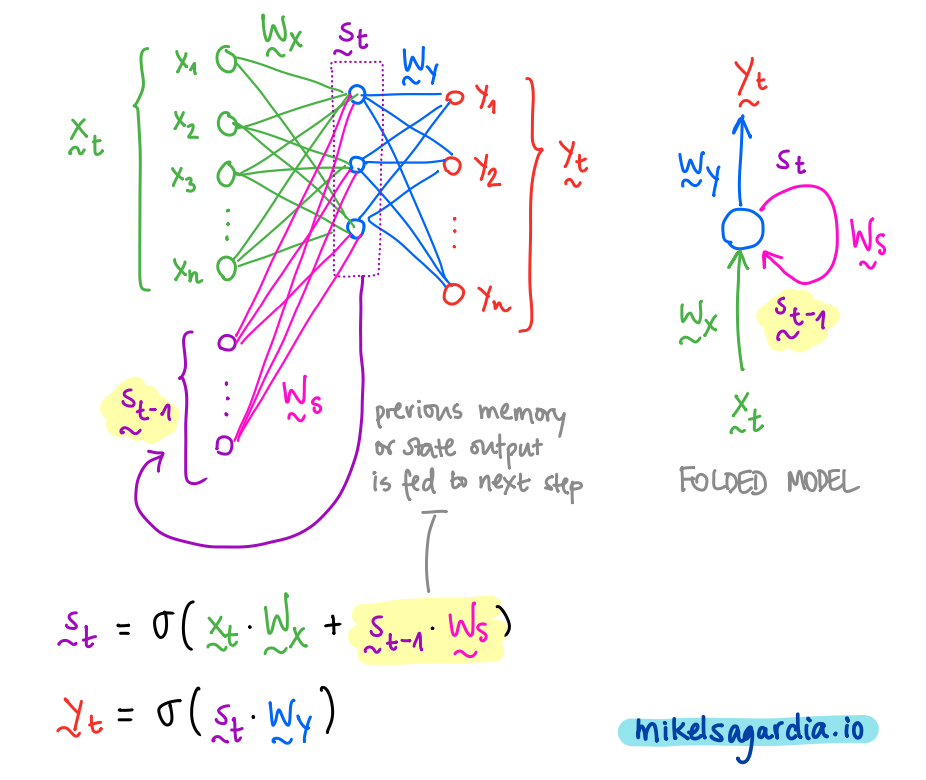 W̰x
s̰t
W̰y
x1
x2
x3
⋮
xn
x̰t
y1
y2
⋮
yn
y̰t
s̰t-1
⋮
W̰s
previous memory
or state output
is fed to next step
y̰t
W̰y
st
W̰s
W̰x
s̰t-1
x̰t
FOLDED MODEL
s̰t = σ(x̰t · W̰x + s̰t-1 · W̰s)
y̰t = σ(s̰t · W̰y)
mikelsagardia.io